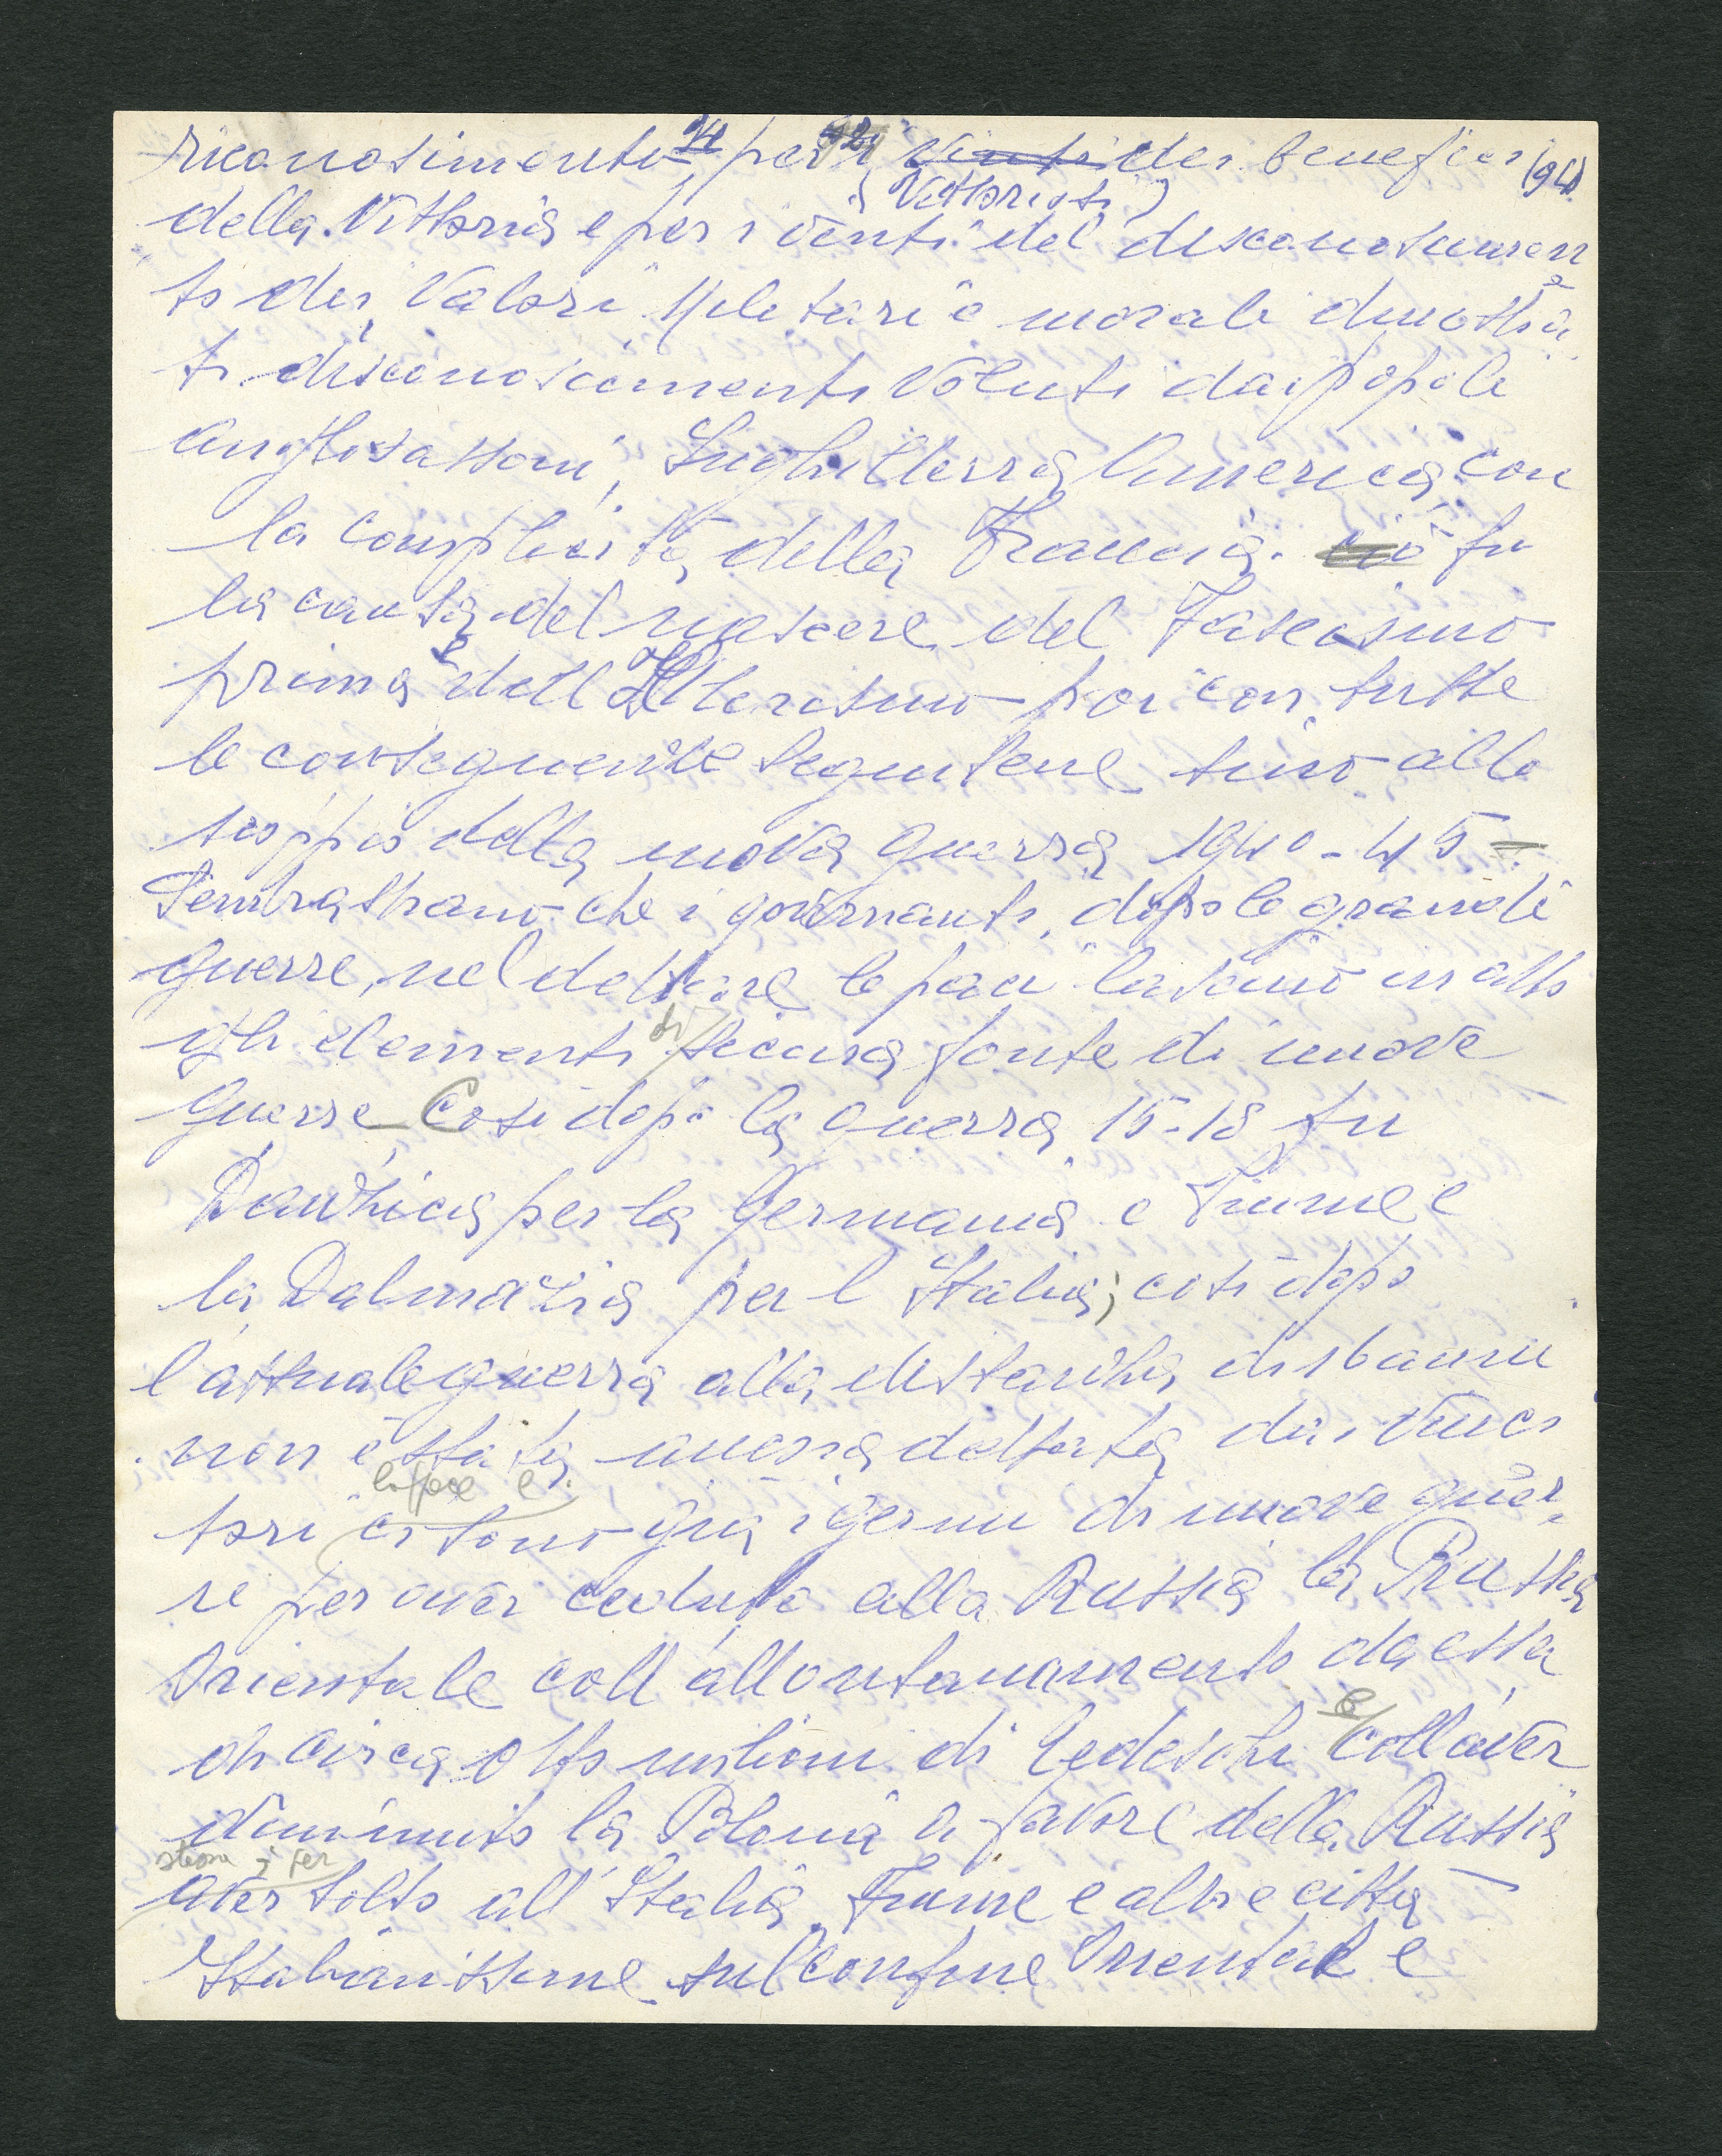 riconosimento per i vinti dei benefici (94)
(Vittoriosi)
della Vittoria e per i venti del disconosimen
to dei Valori Militari e morali dimostra
ti disconoscimenti Voluti dai popoli
anglosassoni, Inghilterra America con
la complicità della Francia. ciò fu
la causa del nascere del Fascismo
prima e dell Hitlerismo poi con tutte
le conseguenze seguitene sino allo
scoppio della nuova guerra 1940-45-
Sembra strano che i governanti, dopo le grandi
guerre, nel dettare le paci lasino in atto
gli elementi di sicura fonte di nuove
guerre Cosi dopo la guerra 15-18 fu
Danzica per la Germania e Fiume e
la Dalmazia per l Italia; cosi dopo
l'attuale guerra alla distanza di 16 anni
non è stata ancora dettata dai vinci
la pace e
tori ci sono già i germi di nuove guer-
re per aver ceduto alla Russia la Prussia
Orientale coll'allontanamento da essa
di circa otto milioni di tedeschi e coll'aver
diminuito la Polonia a favore della Russia
stessa ; per
aver tolto all'Italia Fiume e altre città
Italianissime sul confine Orientale e